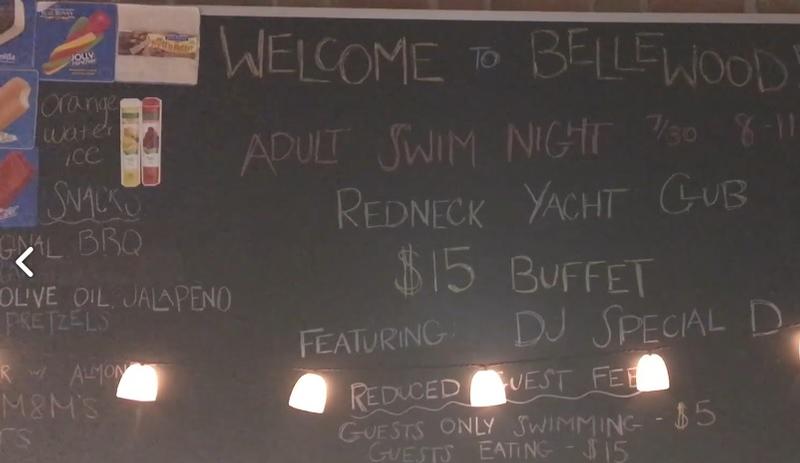 JOLLY
orange
water
ice
SNACKS
BBQ
OLIVE OIL, JALAPENO
PRETZELS
W/ ALMON
M&M'S
WELCOME TO BELLEWOOD
ADULT SWIM NIGHT 7/30 8-11
REDNECK YACHT CLUB
$15 BUFFET
FEATURING: DJ SPECIAL D
REDUCED GUEST FEE
GUESTS ONLY SWIMMING - $5
GUESTS EATING - $15